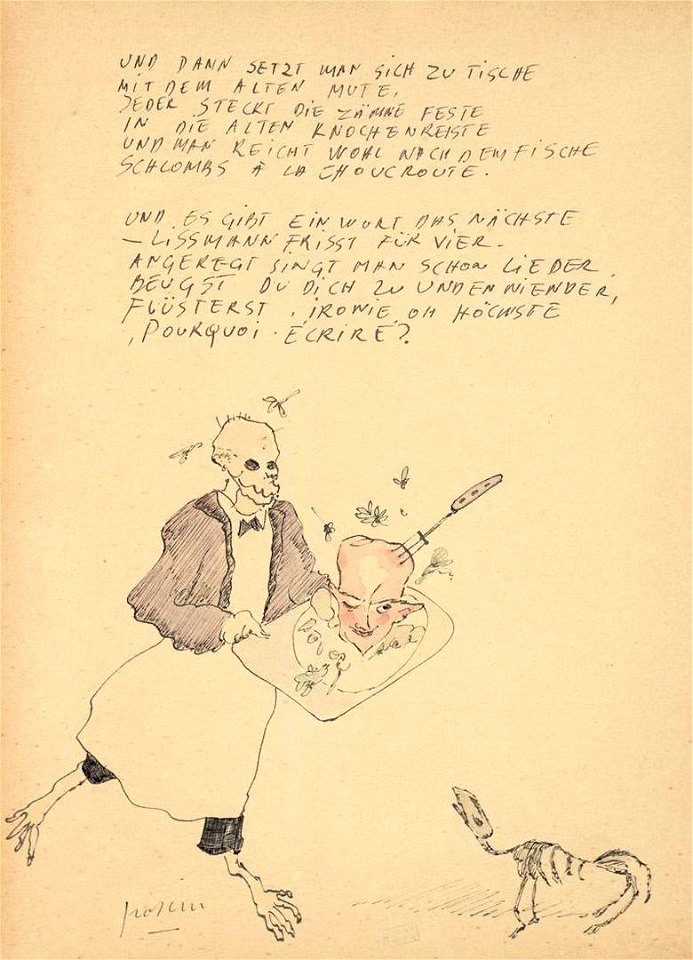 UND DANN SETZT MAN SICH ZU TISCHE
MIT DEM ALTEN MUTE,
JEDER STECKT DIE ZÄHNE FESTE
IN DIE ALTEN KNOCHENRESTE
UND MAN REICHT WOHL NACH DEM FISCHE
SCHLOMBS À LA CHOUCROUTE.
UND ES GIBT EIN WORT DAS NÄCHSTE
– LISSMANN FRISST FÜR VIER –
ANGEREGT SINGT MAN SCHON LIEDER,
BEUGST DU DICH ZU UNDEN NIENDER,
FLÜSTERST, IRONIE, OH HÖCHSTE
'POURQUOI ÉCRIRE?